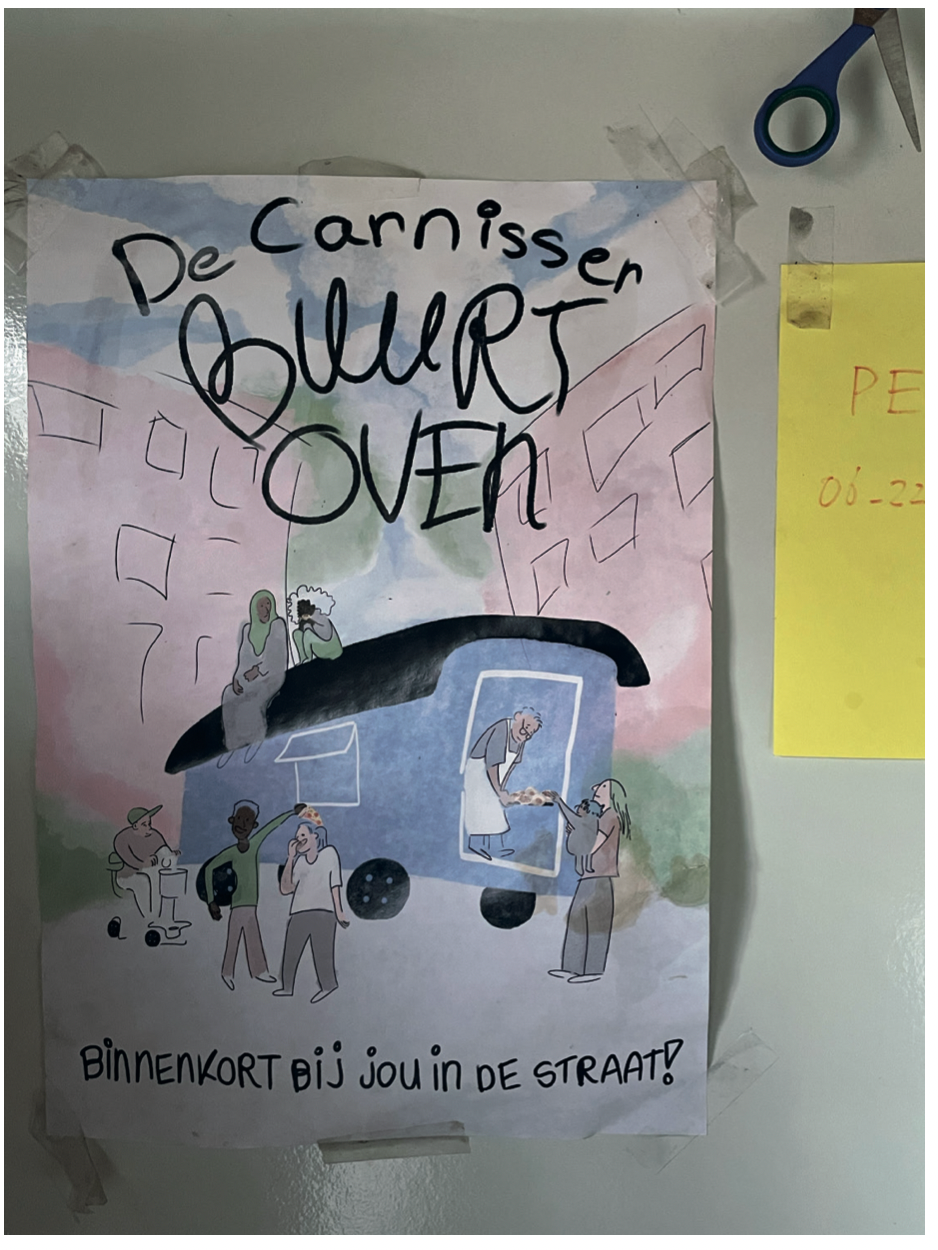 De Carnissen
BUURT
OVEN
BINNENKORT BIJ JOU IN DE STRAAT!
PE
06-22